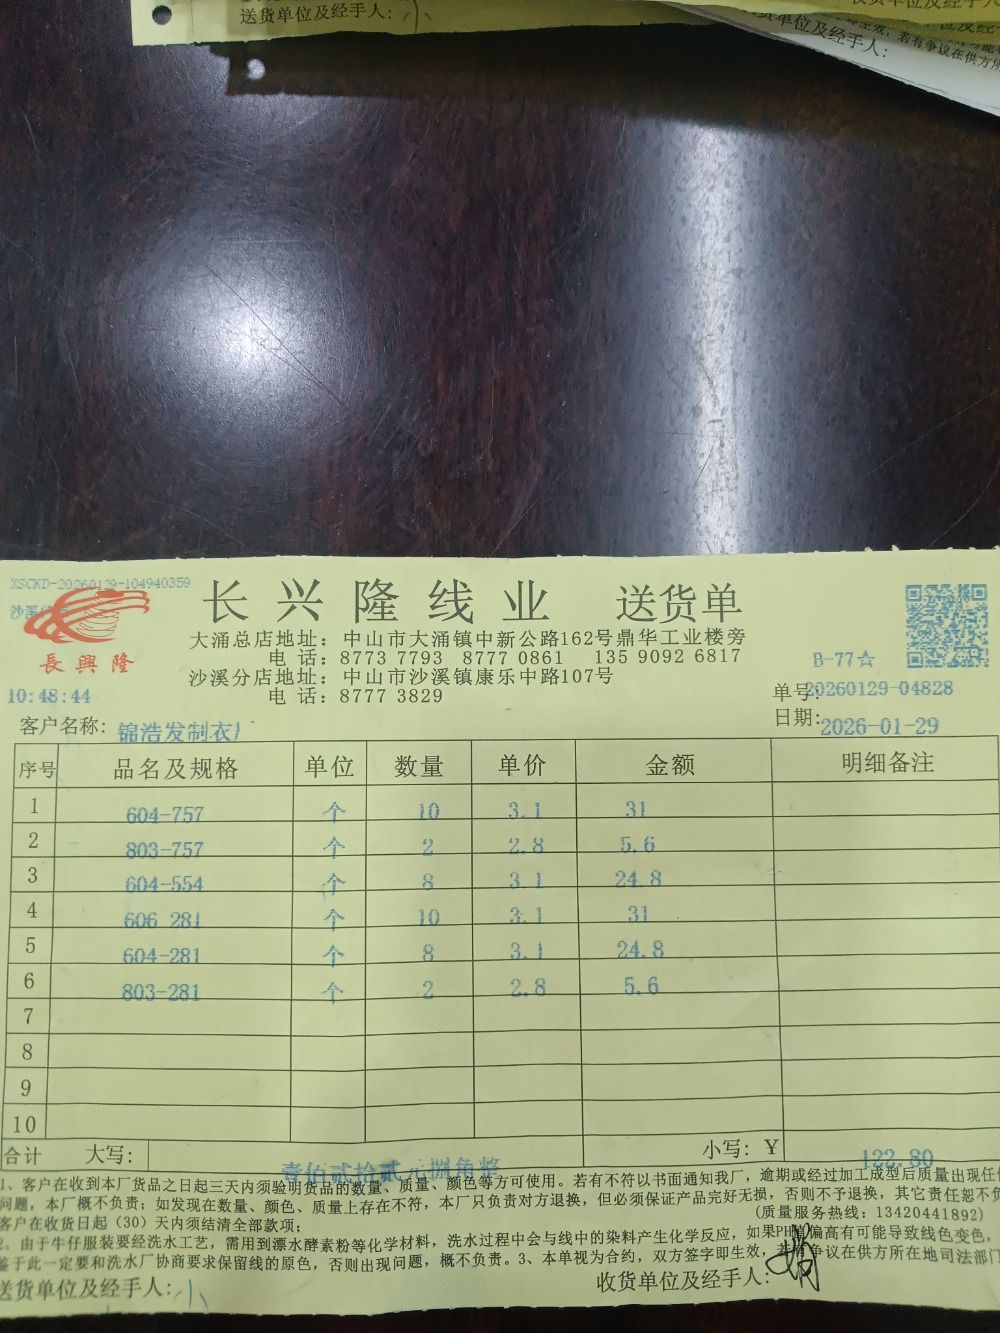 送货单位及经手人：
收货单位及经手人：
货单位及经手人：
若有争议在供方所
XSCKD-20260129-104940359
沙溪
長興隆
10:48:44
长兴隆线业 送货单
大涌总店地址：中山市大涌镇中新公路162号鼎华工业楼旁
电 话：8773 7793 8777 0861 135 9092 6817
沙溪分店地址：中山市沙溪镇康乐中路107号
电 话：8777 3829
B-77☆
单号：20260129-04828
日期：2026-01-29
客户名称：锦浩发制衣厂
序号 品名及规格 单位 数量 单价 金额 明细备注
1 604-757 个 10 3.1 31
2 803-757 个 2 2.8 5.6
3 604-554 个 8 3.1 24.8
4 606 281 个 10 3.1 31
5 604-281 个 8 3.1 24.8
6 803-281 个 2 2.8 5.6
7
8
9
10
合计 大写： 壹佰贰拾贰元捌角整 小写：￥ 122.80
1、客户在收到本厂货品之日起三天内须验明货品的数量、质量、颜色等方可使用。若有不符以书面通知我厂，逾期或经过加工成型后质量出现任何
问题，本厂概不负责；如发现在数量、颜色、质量上存在不符，本厂只负责对方退换，但必须保证产品完好无损，否则不予退换，其它责任恕不负
客户在收货日起（30）天内须结清全部款项； (质量服务热线：13420441892)
2、由于牛仔服装要经洗水工艺，需用到漂水酵素粉等化学材料，洗水过程中会与线中的染料产生化学反应，如果PH值偏高有可能导致线色变色，
鉴于此一定要和洗水厂协商要求保留线的原色，否则出现问题，概不负责。3、本单视为合约，双方签字即生效，若有争议在供方所在地司法部门
送货单位及经手人： 收货单位及经手人：